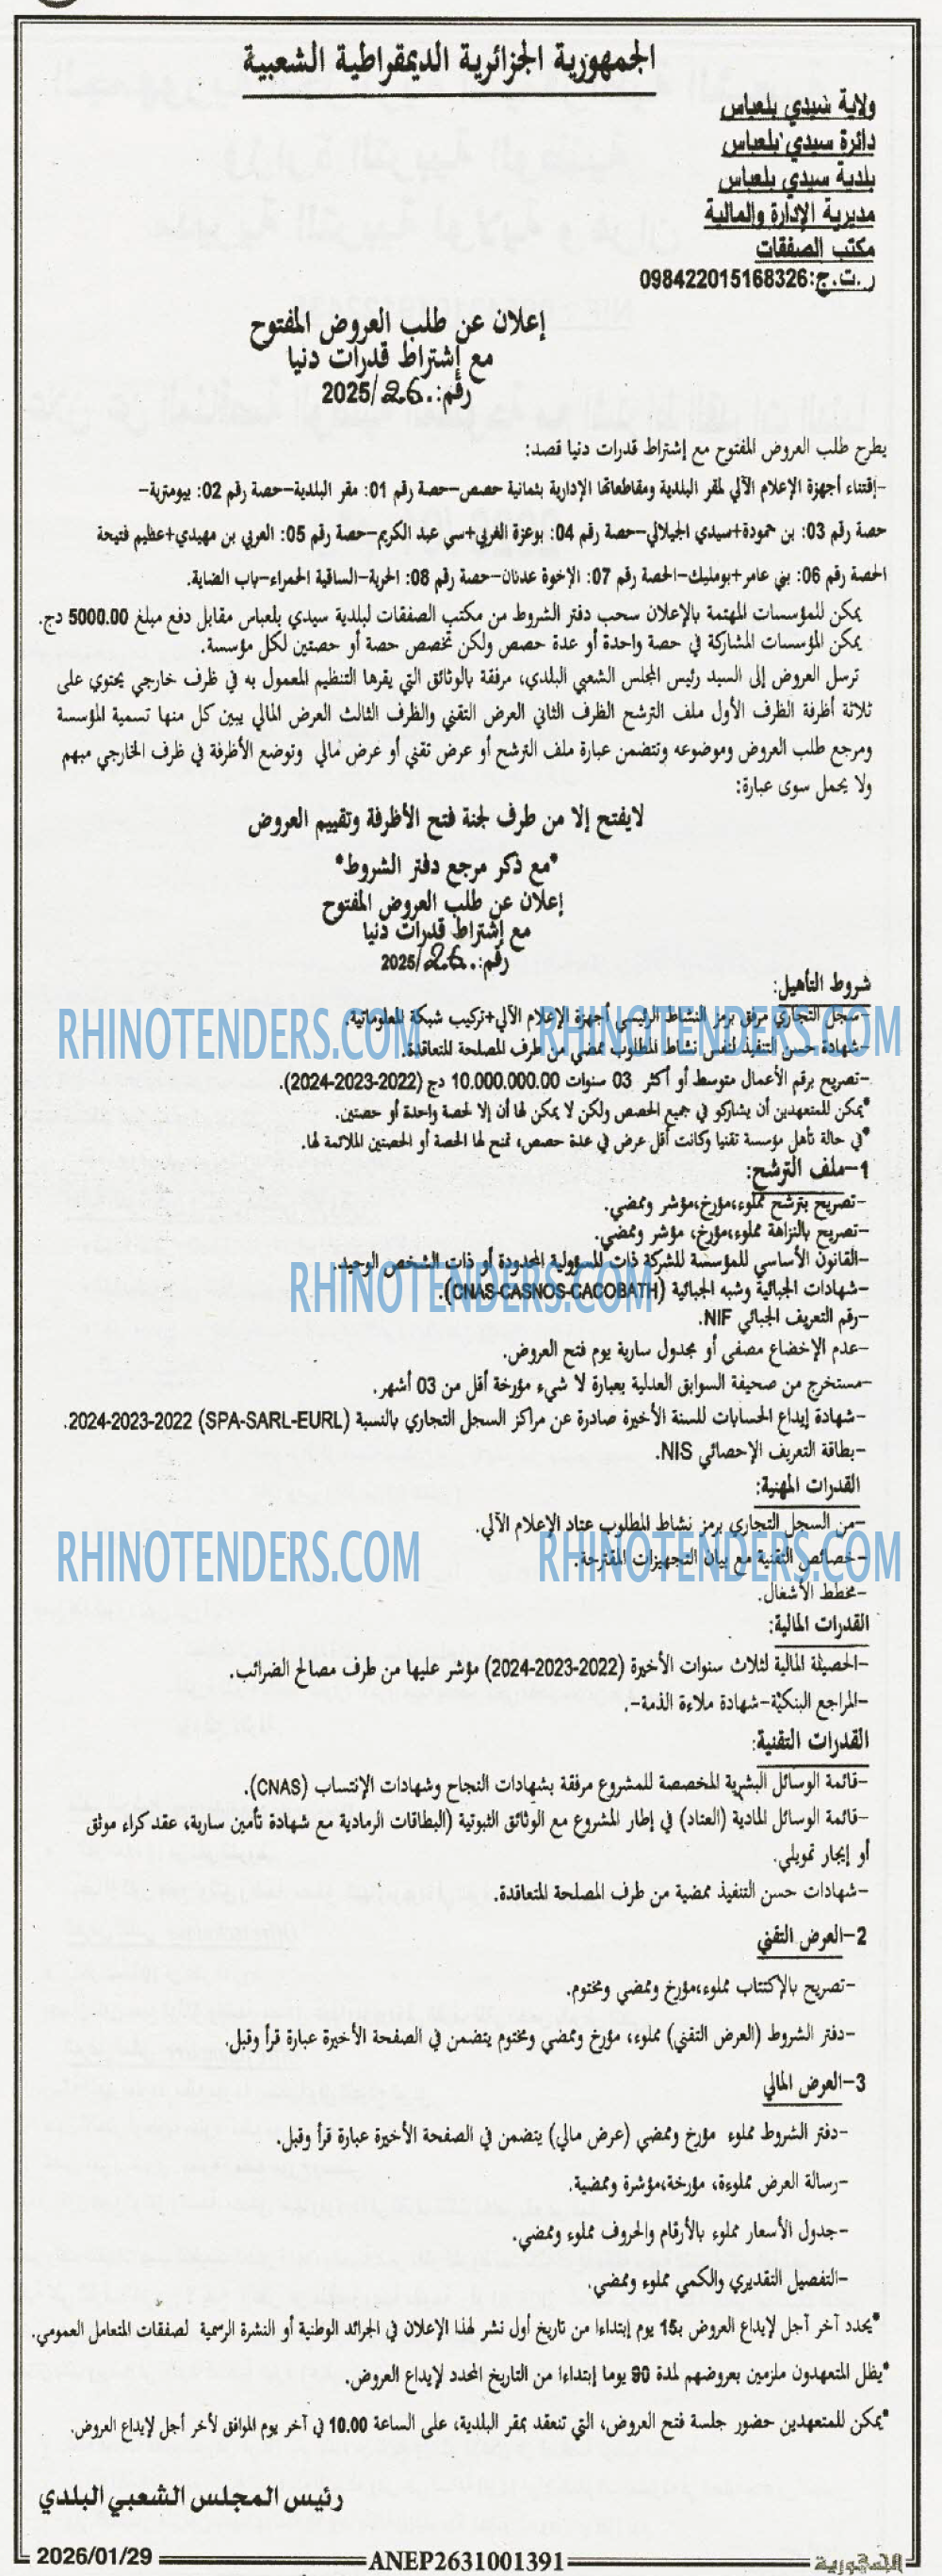 الجمهورية الجزائرية الديمقراطية الشعبية
ولاية سيدي بلعباس
دائرة سيدي بلعباس
بلدية سيدي بلعباس
مديرية الإدارة والمالية
مكتب الصفقات
ر.ت.ج:098422015168326
إعلان عن طلب العروض المفتوح
مع إشتراط قدرات دنيا
رقم:.26./2025
يطرح طلب العروض المفتوح مع إشتراط قدرات دنيا قصد:
-إقتناء أجهزة الإعلام الآلي لمقر البلدية ومقاطعاتها الإدارية بثمانية حصص-حصة رقم 01: مقر البلدية-حصة رقم 02: بيومترية-
حصة رقم 03: بن حمودة+سيدي الجيلالي-حصة رقم 04: بوعزة الغربي+سي عبد الكريم-حصة رقم 05: العربي بن مهيدي+عظيم فتيحة
الحصة رقم 06: بني عامر+بومليك-الحصة رقم 07: الإخوة عدنان-حصة رقم 08: الحرية-الساقية الحمراء-باب الضاية.
يمكن للمؤسسات المهتمة بالإعلان سحب دفتر الشروط من مكتب الصفقات لبلدية سيدي بلعباس مقابل دفع مبلغ 5000.00 دج.
يمكن المؤسسات المشاركة في حصة واحدة أو عدة حصص ولكن تخصص حصة أو حصتين لكل مؤسسة.
ترسل العروض إلى السيد رئيس المجلس الشعبي البلدي، مرفقة بالوثائق التي يقرها التنظيم المعمول به في ظرف خارجي يحتوي على
ثلاثة أظرفة الظرف الأول ملف الترشح الظرف الثاني العرض التقني والظرف الثالث العرض المالي يبين كل منها تسمية المؤسسة
ومرجع طلب العروض وموضوعه وتتضمن عبارة ملف الترشح أو عرض تقني أو عرض مالي وتوضع الأظرفة في ظرف الخارجي مبهم
ولا يحمل سوى عبارة:
لايفتح إلا من طرف لجنة فتح الأظرفة وتقييم العروض
*مع ذكر مرجع دفتر الشروط*
إعلان عن طلب العروض المفتوح
مع إشتراط قدرات دنيا
رقم:.26./2025
شروط التأهيل:
-سجل التجاري مرفق برمز النشاط الرئيسي أجهزة الإعلام الآلي+تركيب شبكة المعلوماتية.
-شهادة حسن التنفيذ لنفس نشاط المطلوب ممضي من طرف المصلحة المتعاقدة.
-تصريح برقم الأعمال متوسط أو أكثر 03 سنوات 10.000.000.00 دج (2022-2023-2024).
*يمكن للمتعهدين أن يشاركو في جميع الحصص ولكن لا يمكن لها أن إلا لحصة واحدة أو حصتين.
*في حالة تأهل مؤسسة تقنيا وكانت أقل عرض في عدة حصص، تمنح لها الحصة أو الحصتين الملائمة لها.
1-ملف الترشح:
-تصريح بترشح مملوء،مؤرخ،مؤشر وممضي.
-تصريح بالنزاهة مملوء،مؤرخ، مؤشر وممضي.
-القانون الأساسي للمؤسسة للشركة ذات المسؤولية المحدودة أو ذات الشخص الوحيد.
-شهادات الجبائية وشبه الجبائية (CNAS-CASNOS-CACOBATH).
-رقم التعريف الجبائي NIF.
-عدم الإخضاع مصفى أو مجدول سارية يوم فتح العروض.
-مستخرج من صحيفة السوابق العدلية بعبارة لا شيء مؤرخة أقل من 03 أشهر.
-شهادة إيداع الحسابات للسنة الأخيرة صادرة عن مراكز السجل التجاري بالنسبة (SPA-SARL-EURL) 2022-2023-2024.
-بطاقة التعريف الإحصائي NIS.
القدرات المهنية:
-من السجل التجاري برمز نشاط المطلوب عتاد الإعلام الآلي.
-خصائص التقنية مع بيان التجهيزات المقترحة.
-مخطط الأشغال.
القدرات المالية:
-الحصيلة المالية لثلاث سنوات الأخيرة (2022-2023-2024) مؤشر عليها من طرف مصالح الضرائب.
-المراجع البنكية-شهادة ملاءة الذمة-.
القدرات التقنية:
-قائمة الوسائل البشرية المخصصة للمشروع مرفقة بشهادات النجاح وشهادات الإنتساب (CNAS).
-قائمة الوسائل المادية (العتاد) في إطار المشروع مع الوثائق الثبوتية (البطاقات الرمادية مع شهادة تأمين سارية، عقد كراء موثق
أو إيجار تمويلي.
-شهادات حسن التنفيذ ممضية من طرف المصلحة المتعاقدة.
2-العرض التقني
-تصريح بالإكتتاب مملوء،مؤرخ وممضي ومختوم.
-دفتر الشروط (العرض التقني) مملوء، مؤرخ وممضي ومختوم يتضمن في الصفحة الأخيرة عبارة قرأ وقبل.
3-العرض المالي
-دفتر الشروط مملوء مؤرخ وممضي (عرض مالي) يتضمن في الصفحة الأخيرة عبارة قرأ وقبل.
-رسالة العرض مملوءة، مؤرخة،مؤشرة وممضية.
-جدول الأسعار مملوء بالأرقام والحروف مملوء وممضي.
-التفصيل التقديري والكمي مملوء وممضي.
*يحدد آخر آجل لإيداع العروض بـ15 يوم إبتداءا من تاريخ أول نشر لهذا الإعلان في الجرائد الوطنية أو النشرة الرسمية لصفقات المتعامل العمومي.
*يظل المتعهدون ملزمين بعروضهم لمدة 90 يوما إبتداءا من التاريخ المحدد لإيداع العروض.
*يمكن للمتعهدين حضور جلسة فتح العروض، التي تنعقد بمقر البلدية، على الساعة 10.00 في آخر يوم الموافق لأخر أجل لإيداع العروض.
رئيس المجلس الشعبي البلدي
الجمهورية ANEP2631001391 2026/01/29
RHINOTENDERS.COM RHINOTENDERS.COM
RHINOTENDERS.COM
RHINOTENDERS.COM RHINOTENDERS.COM